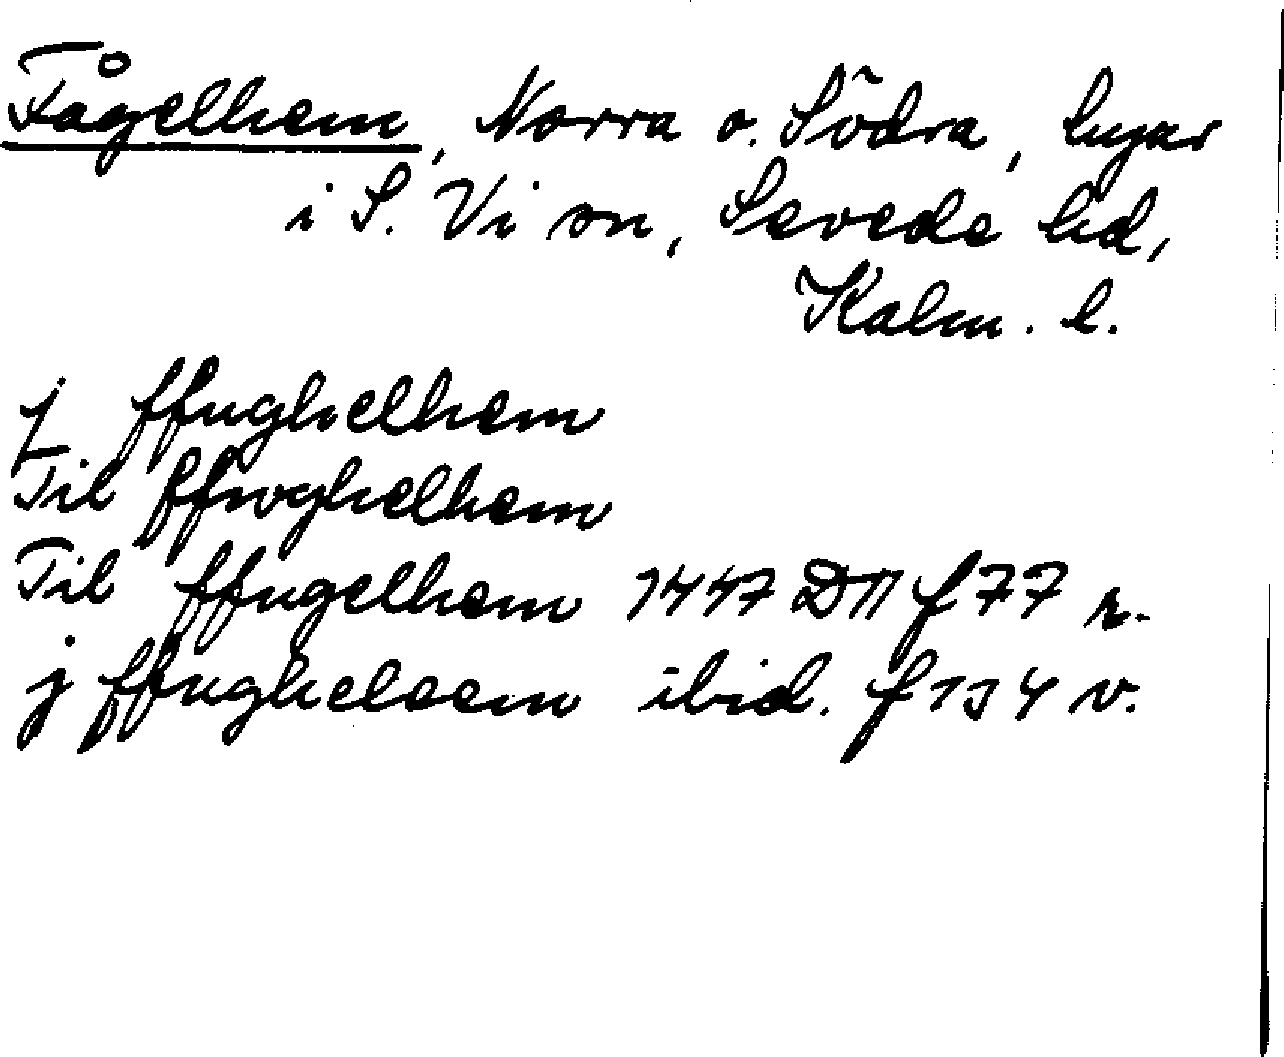 Fågelhem, Norra o. Södra, byar
i S. Vi sn, Sevede hd,
Kalm. l.
j ffughelhem
Til ffwghelhem
Til ffugelhem 1447 D11 f 77 r.
j ffugheleem ibid. f 134 v.